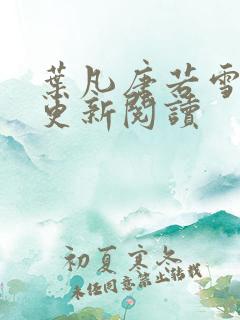 葉凡唐若雪
更新閱讀
初夏寒冬
未經同意禁止轉載